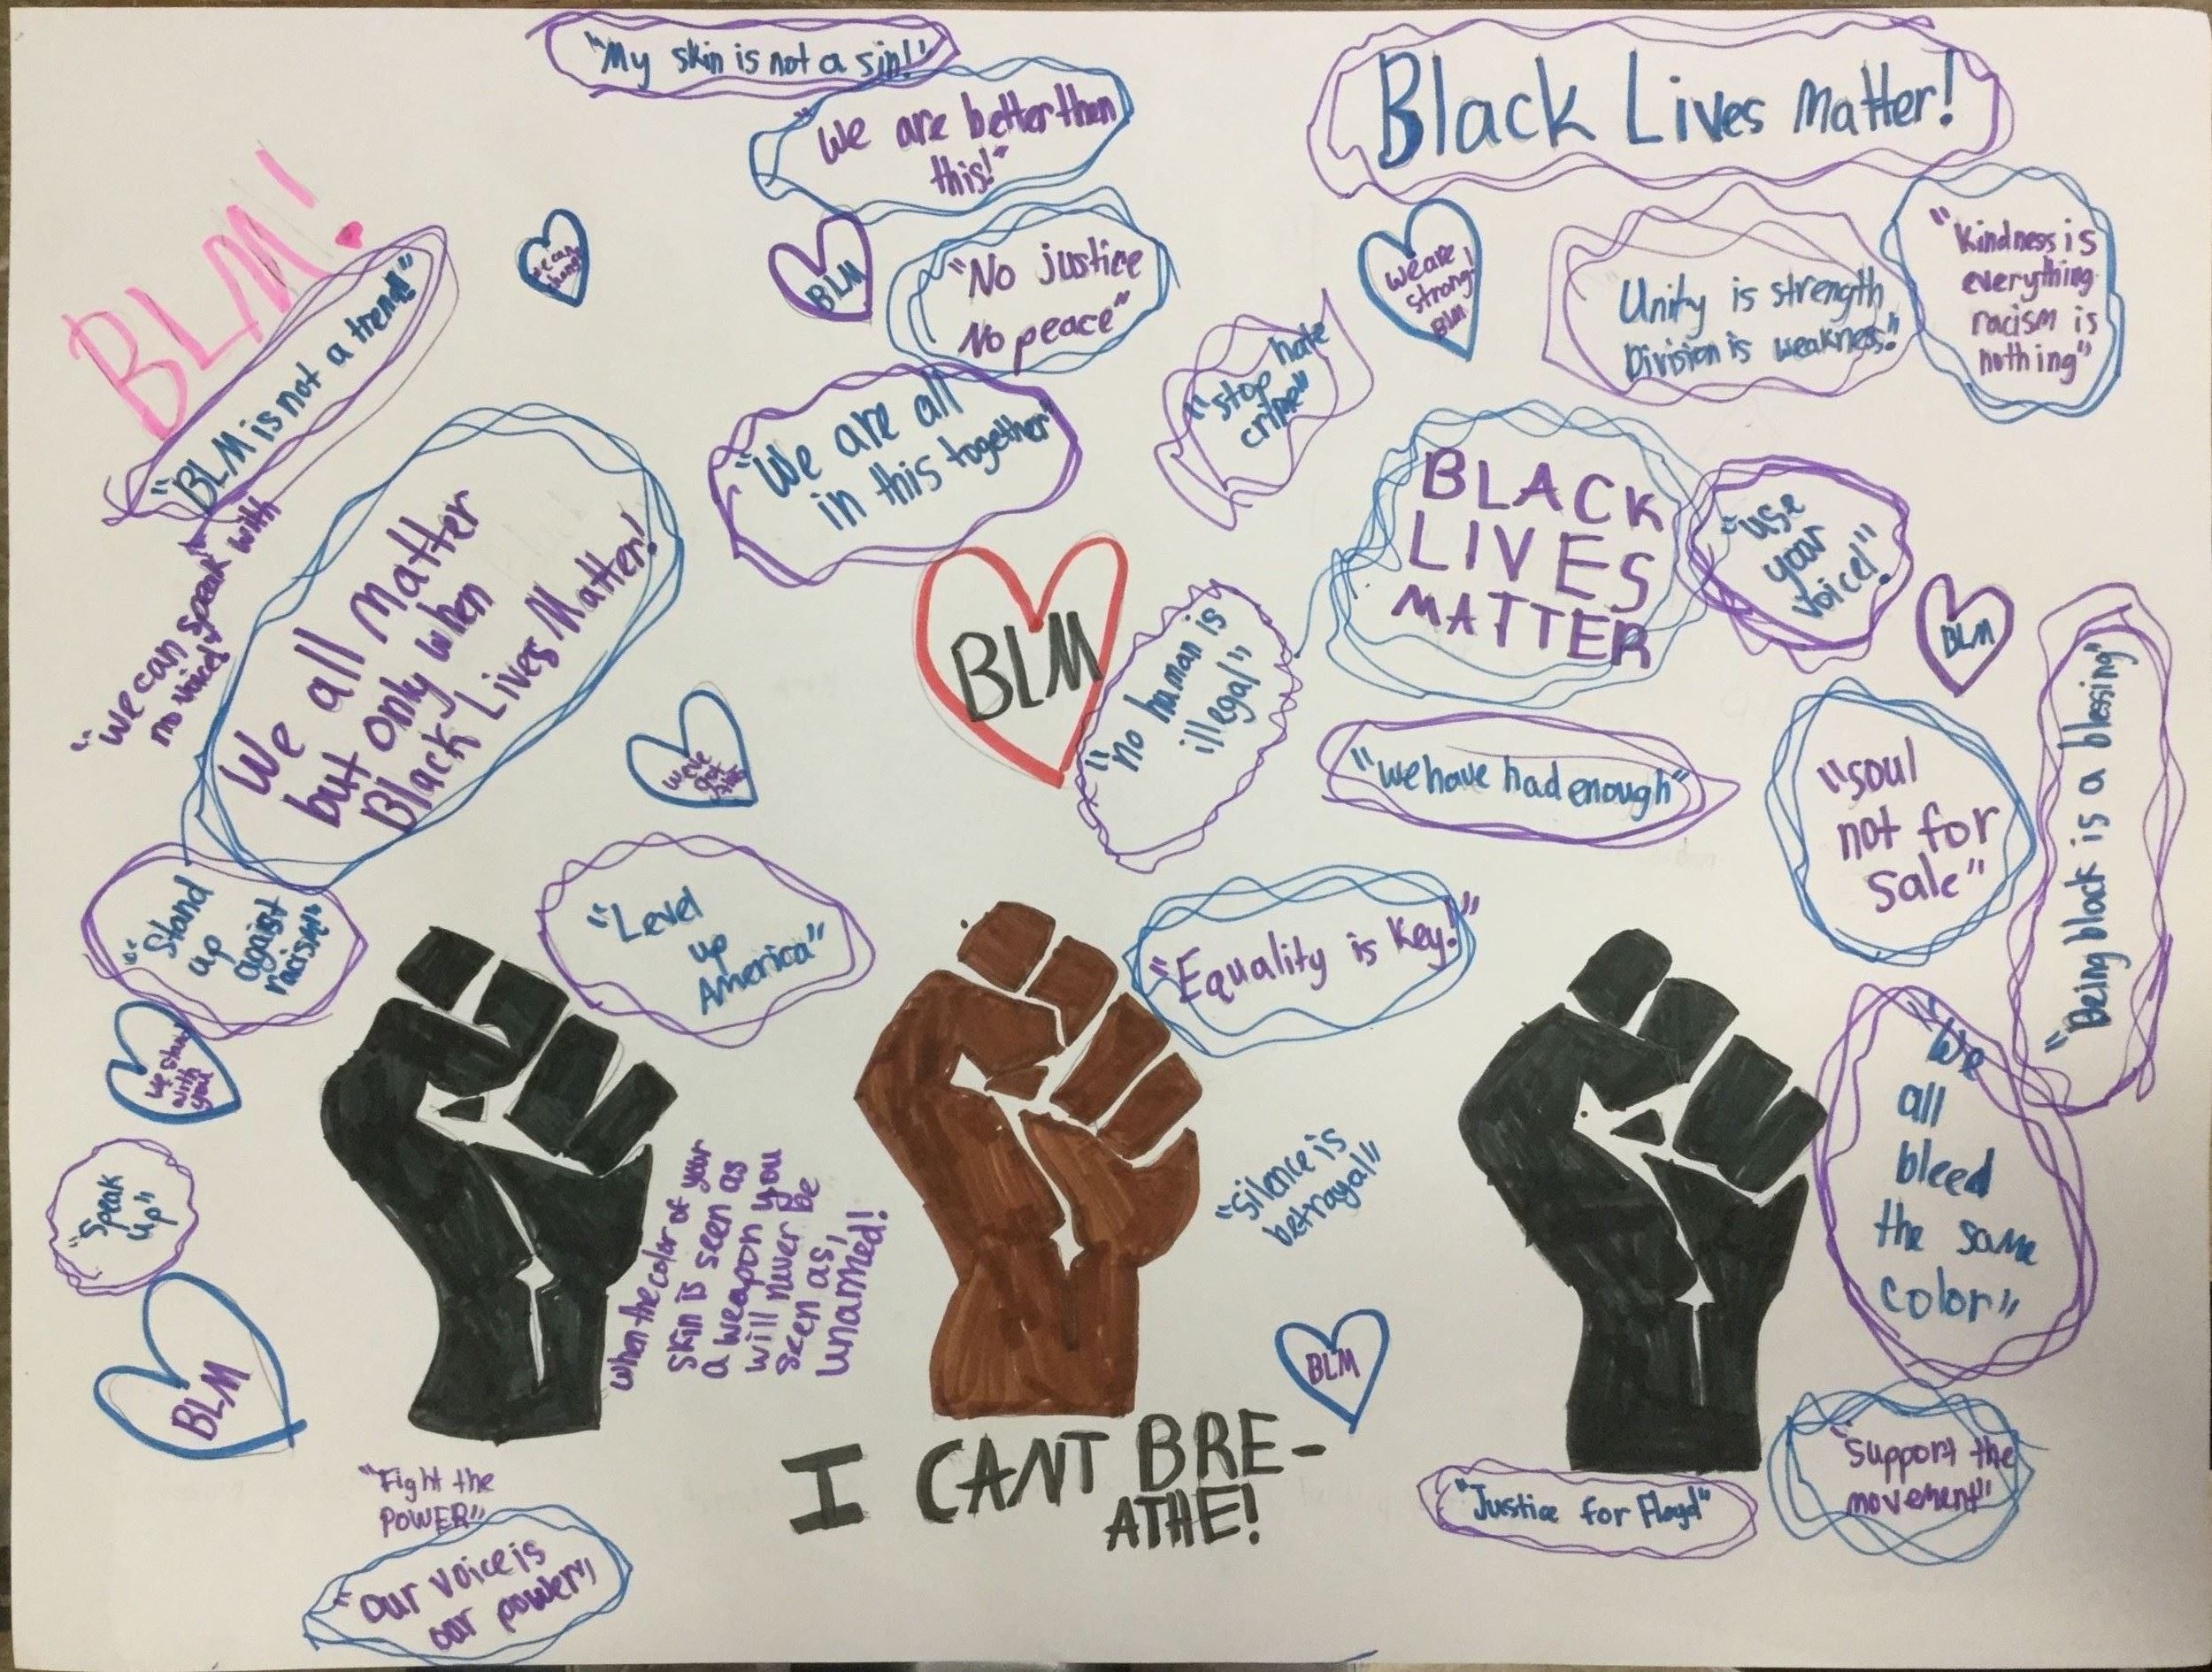 "My skin is not a sin!"
"We are better then
this!"
Black Lives Matter!
BLM!
"BLM is not a trend!"
we can
BLM
"No justice
No peace"
we are
strong!
BLM
Unity is strength
Division is weakness."
"Kindness is
everything
racism is
nothing"
"stop hate
crime"
"We are all
in this together"
BLACK
LIVES
MATTER
"use
your
voice!"
"we can speak with
no voice!"
We all Matter
but only when
Black Lives Matter!
BLM
"no human is
illegal"
BLM
"we have had enough"
"soul
not for
sale"
"Being black is a blessing"
we've
got
this
"Stand
up
against
racism"
"Level
up
America"
"Equality is Key!"
we stand
with
you
"We
all
bleed
the same
color"
"Speak
up"
when the color of your
skin is seen as
a weapon you
will never be
seen as,
unarmed!
"silence is
betrayal"
BLM
BLM
I CANT BRE-
ATHE!
"Fight the
POWER"
"our voice is
our power"
"Justice for Floyd"
"Support the
movement"